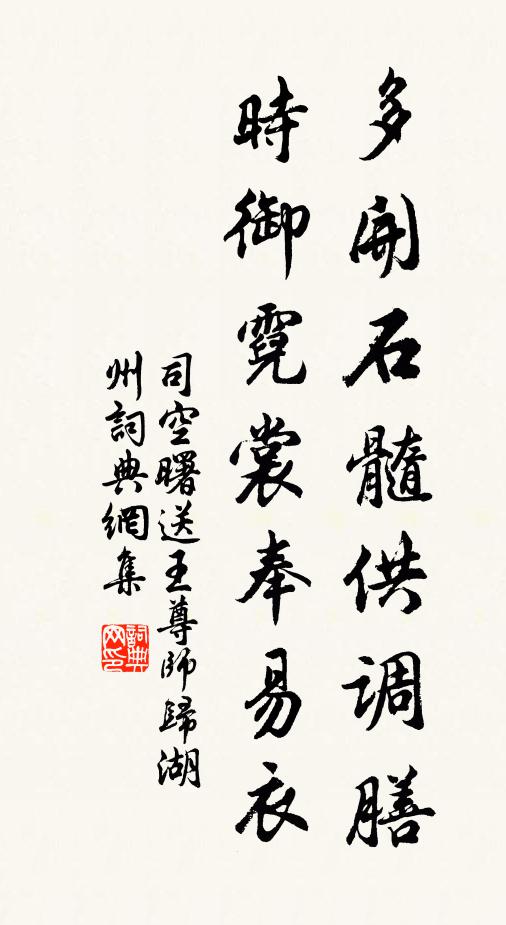 多開石髓供调膳
時御霓裳奉易衣
司空曙送王尊師歸湖
州詞典網集
詞典
网印